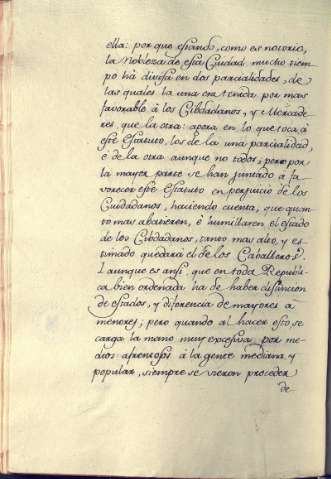 ella: por que estando, como es notorio,
la Nobleza de esta Ciudad mucho tiem-
po há divisa en dos parcialidades, de
las quales la una era tenida por mas
favorable á los Ciudadanos, y Mercade-
res, que la otra: agora en lo que toca á
este Estatuto, los de la una parcialidad,
é de la otra aunque no todos; pero por
la mayor parte se han juntado á fa-
vorecer este Estatuto en perjuicio de los
Ciudadanos, haciendo cuenta, que quan-
to mas abatieren, é humillaren el estado
de los Ciudadanos, tanto mas alto, y es-
timado quedará el de los Caballeros.
I aunque es ansi, que en toda Republi-
ca bien ordenada ha de haber distincion
de estados, y diferencia de mayores á
menores; pero quando al hacer esto se
carga la mano muy excesiva, por me-
dios afrentosos á la gente mediana y
popular, siempre se vieron proceder
de